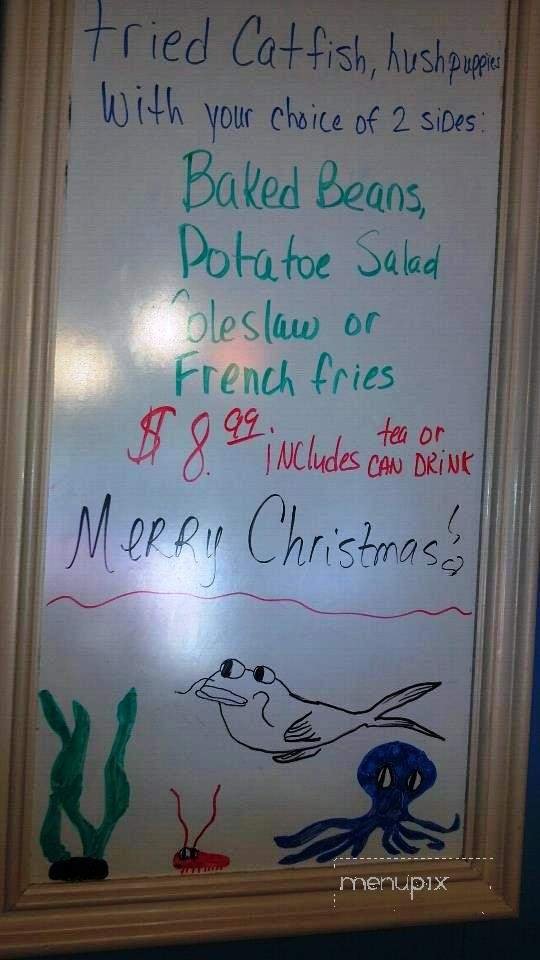 Fried Catfish, hushpuppies
With your choice of 2 sides:
Baked Beans,
Potatoe Salad
Coleslaw or
French fries
$8.99. includes tea or CAN DRINK
Merry Christmas!
menupix